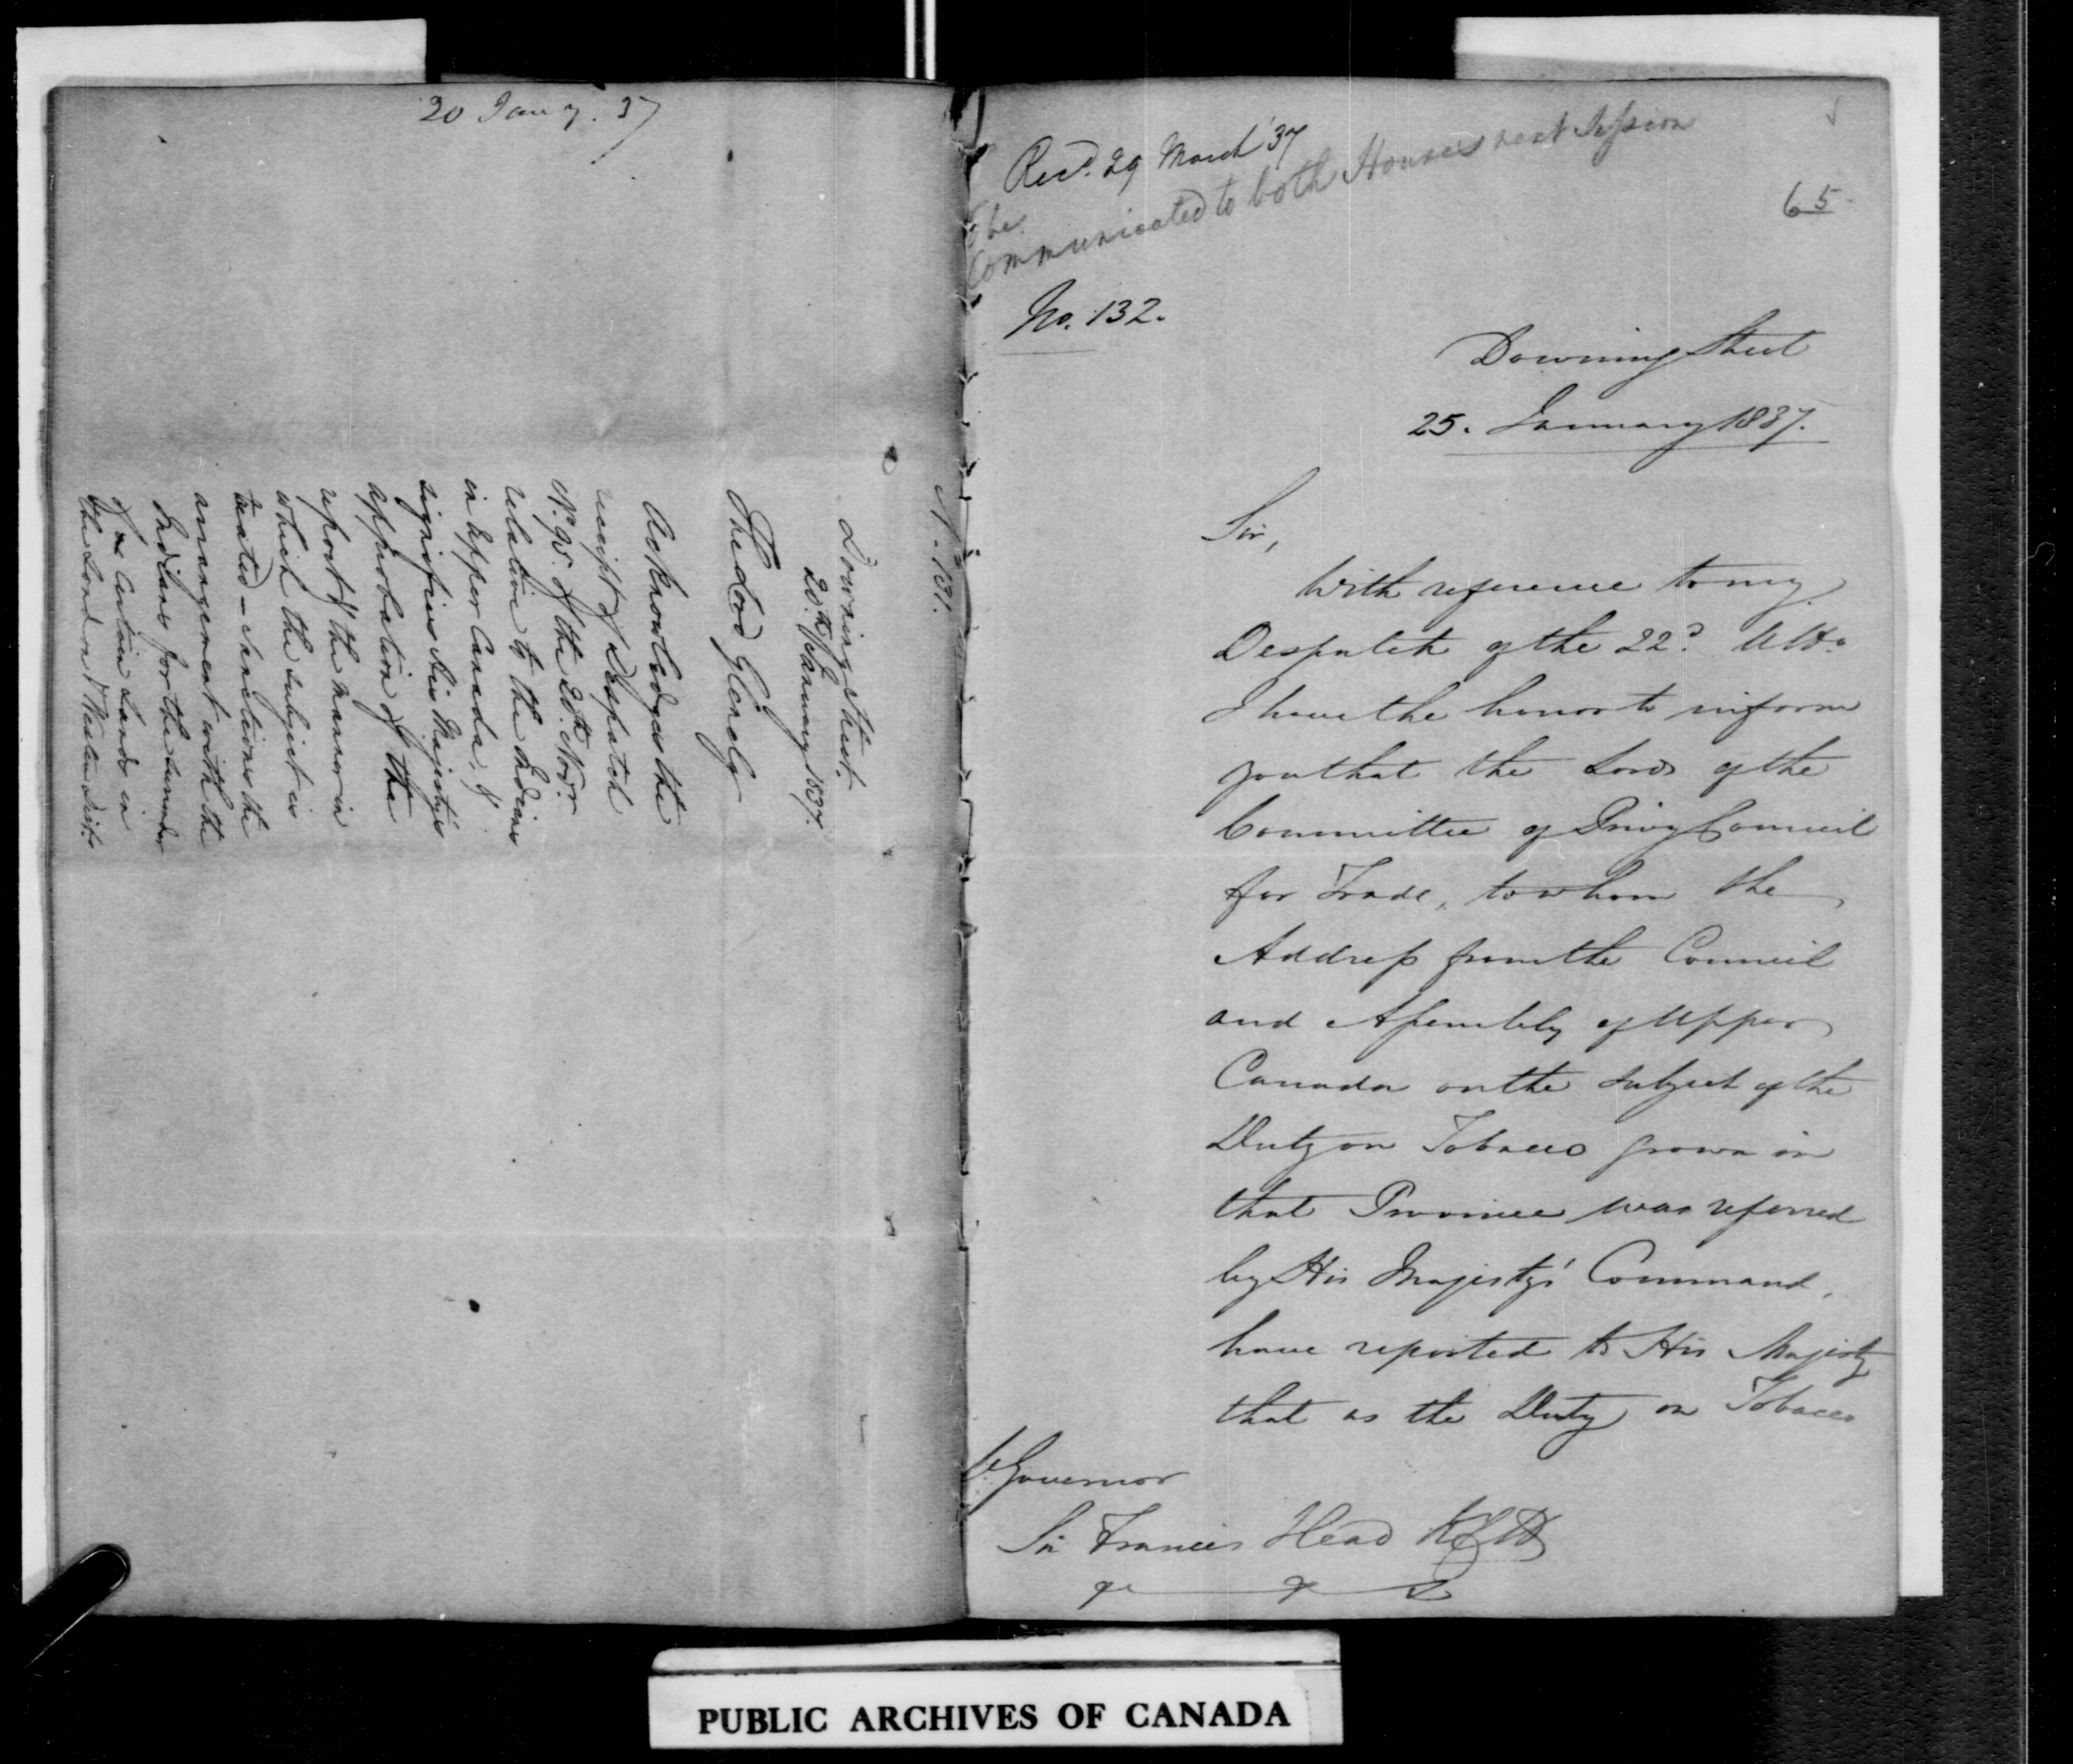 20 Jany. 37
No. 131.
Downing Street.
20th January 1837.
The Lord Glenelg
Acknowledges the
receipt of Despatch
No. 95. of the 20th Novr
relative to the Indians
in Upper Canada, &
signifies His Majesty's
approbation of the
report & the manner in
which the subject is
treated - Sanctions the
arrangement with the
Indians for the surrender
of certain Lands in
the London & Western Dist.
Recd. 29 March '37
To be
Communicated to both Houses next Session
65
No. 132.
Downing Street
25. January 1837.
Sir,
With reference to my
Despatch of the 22d. Ulto.
I have the honor to inform
you that the Lords of the
Committee of Privy Council
for Trade, to whom the
Address from the Council
and Assembly of Upper
Canada on the subject of the
Duty on Tobacco grown in
that Province was referred
by His Majesty's Command,
have reported to His Majesty
that as the Duty on Tobacco
Lt. Governor
Sir Francis Head KCH
&c &c &c
PUBLIC ARCHIVES OF CANADA